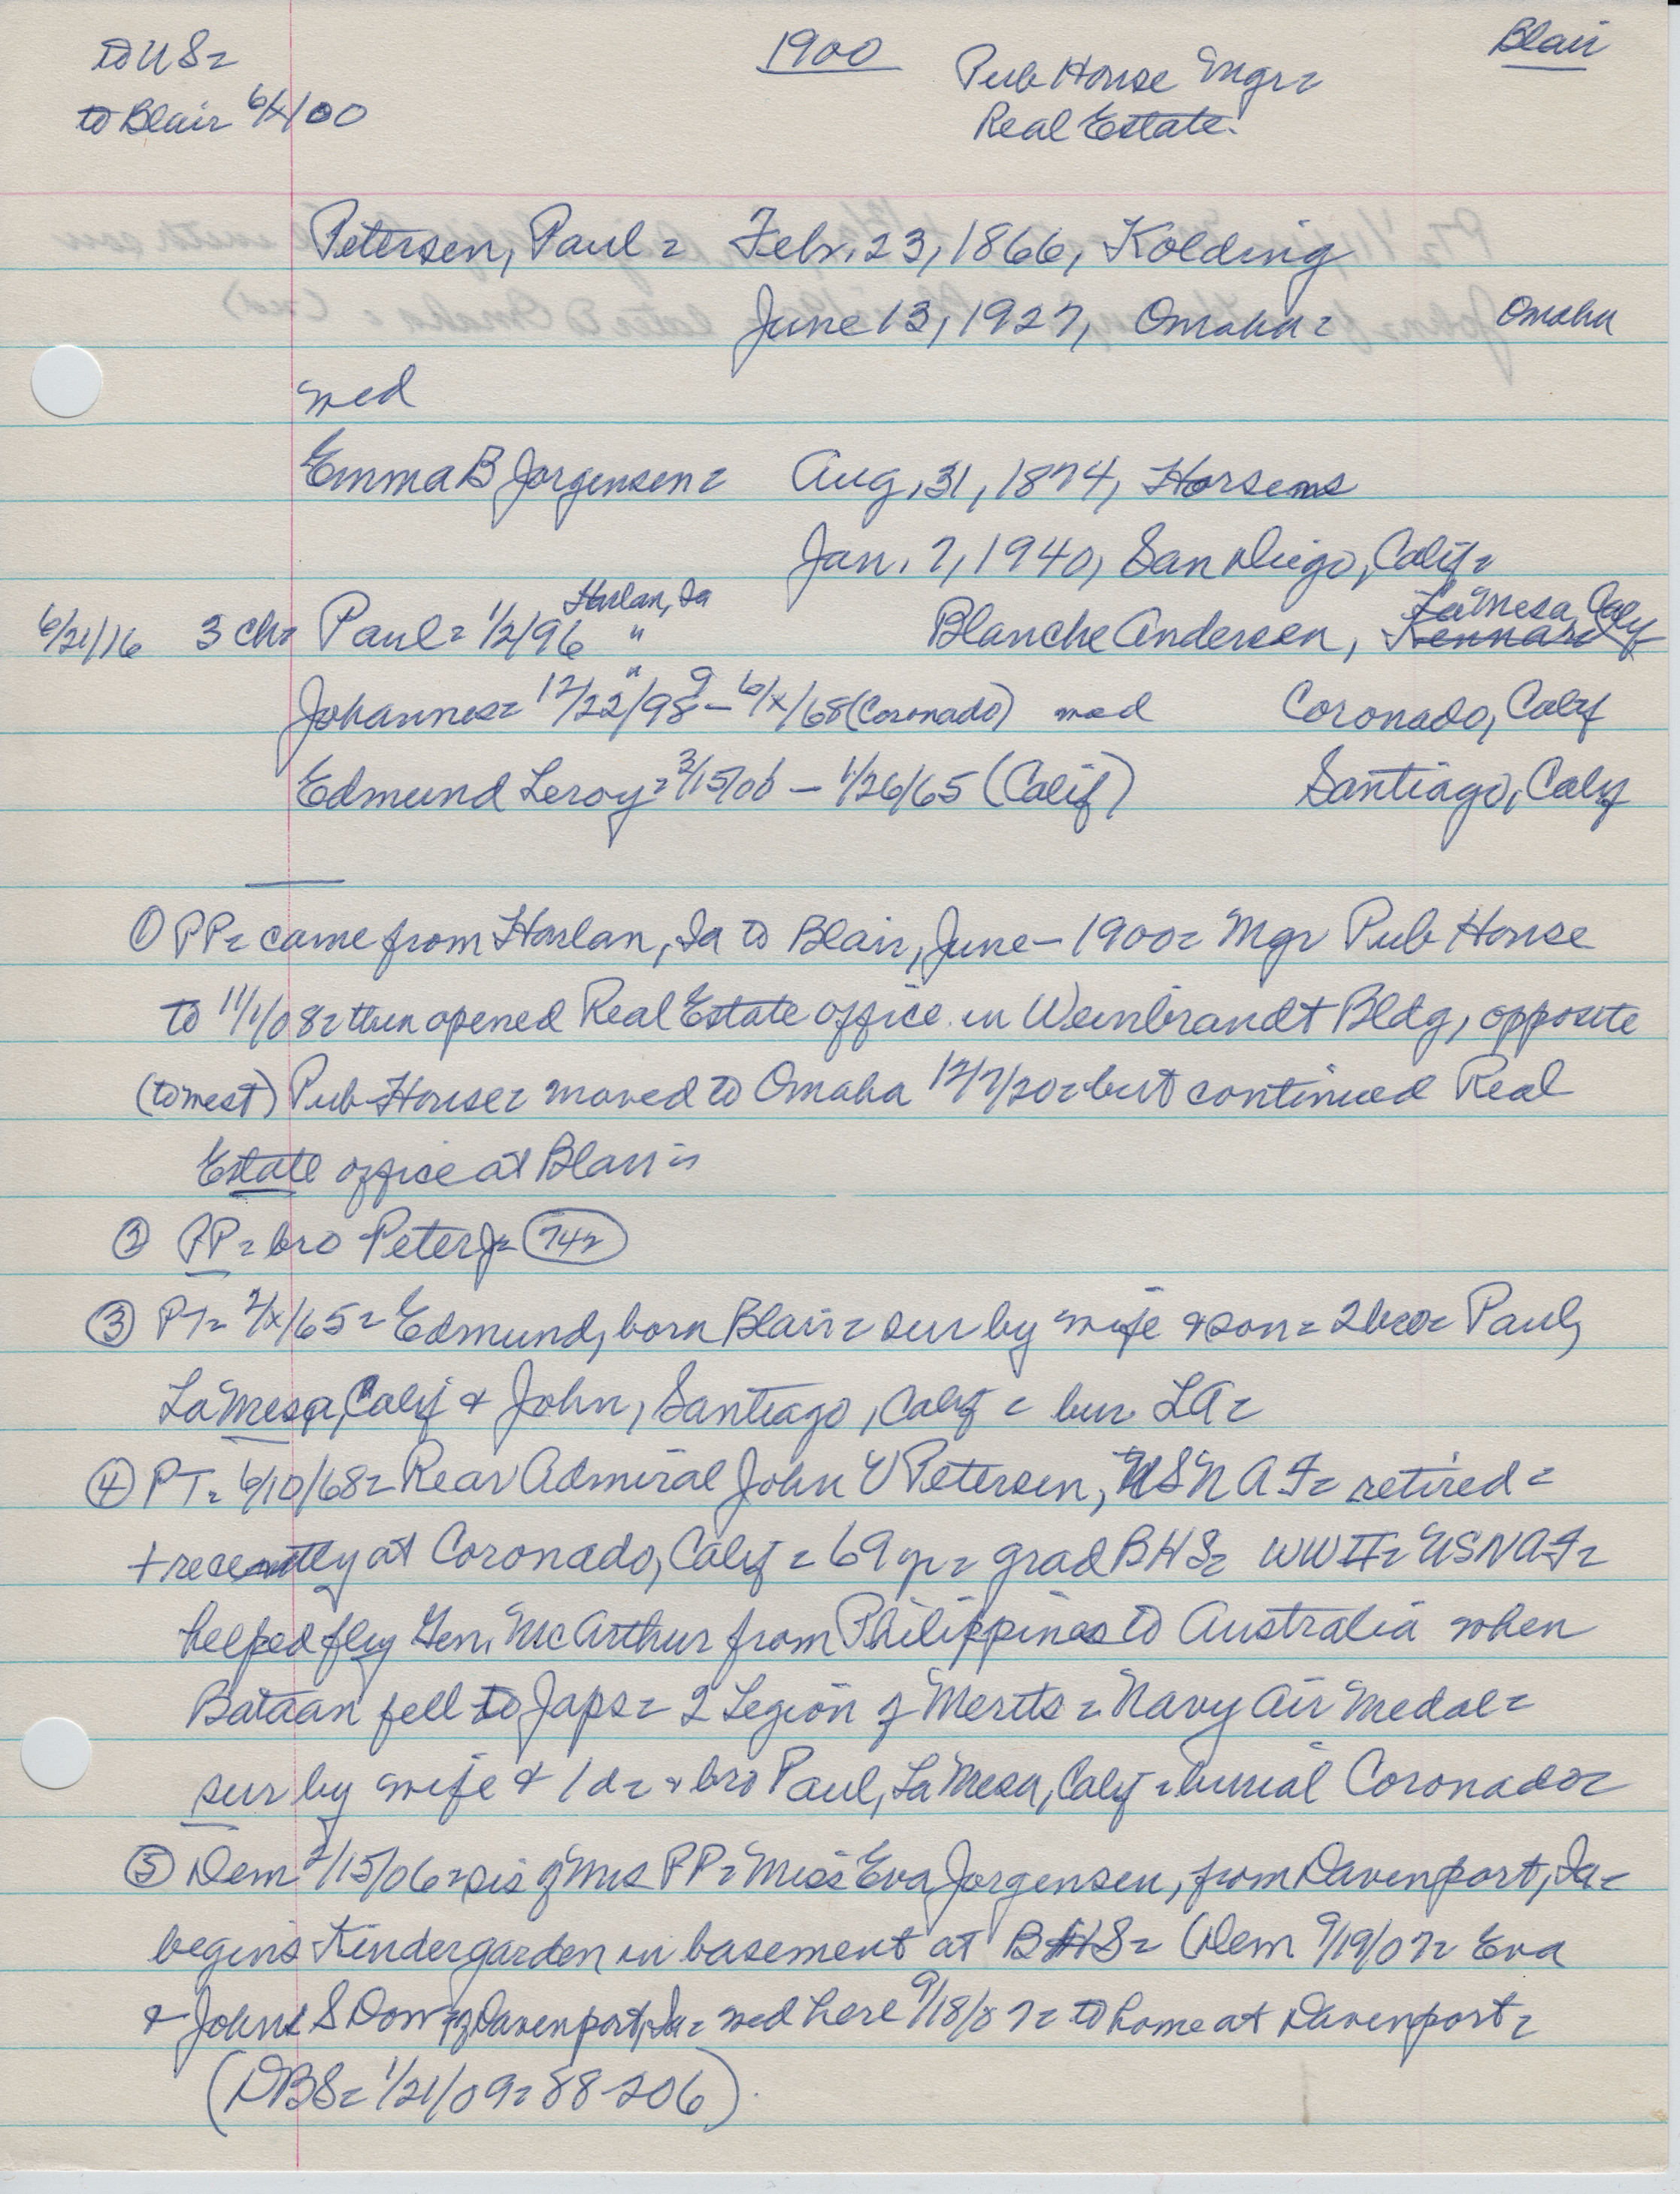 to US=
1900
Blair
Pub House Mgr=
to Blair 6/x/00
Real Estate.
Petersen, Paul = Febr. 23, 1866, Kolding
June 13, 1927, Omaha =
Omaha
med
Emma B Jorgensen = Aug, 31, 1874, Horsens
Jan. 7, 1940, San Diego, Calif =
Harlan, Ia
La Mesa, Calif
6/21/16 3 ch= Paul = 1/2/96 " Blanche Andersen, Kennard
Johannes = 12/22/98 9 - 6/x/68 (Coronado) med Coronado, Calif
Edmund Leroy = 2/15/06 - 1/26/65 (Calif) Santiago, Calif
① PP= came from Harlan, Ia to Blair, June - 1900 = Mgr Pub House
to 11/1/08 = then opened Real Estate office in Weinbrandt Bldg, opposite
(to west) Pub House = moved to Omaha 12/7/20 = but continued Real
Estate office at Blair =
② PP = bro Peter J= 742
③ PT= 2/x/65 = Edmund, born Blair = sur by wife & son = 2 bro = Paul,
La Mesa, Calif & John, Santiago, Calif = bur. LA =
④ PT= 6/10/68 = Rear Admiral John V Petersen, USNAF = retired =
+ recently at Coronado, Calif = 69 yr = grad BHS = WWII = USNAF =
helped fly Gen. McArthur from Philippines to Australia when
Bataan fell to Japs = 2 Legion of Merits = Navy Air Medal =
sur by wife & 1 d = & bro Paul, La Mesa, Calif = burial Coronado =
⑤ Dem 2/15/06 = sis of Mrs PP = Miss Eva Jorgensen, from Davenport, Ia =
begins Kindergarden in basement at BHS = (Dem 9/19/07 = Eva
& John S Dow of Davenport, Ia = med here 9/18/07 = to home at Davenport =
(DBS = 1/21/09 = 88-206).